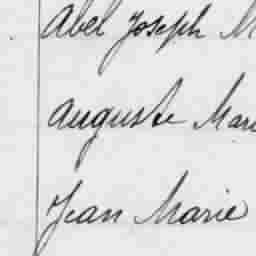 Abel Joseph M
Auguste Mari
Jean Marie